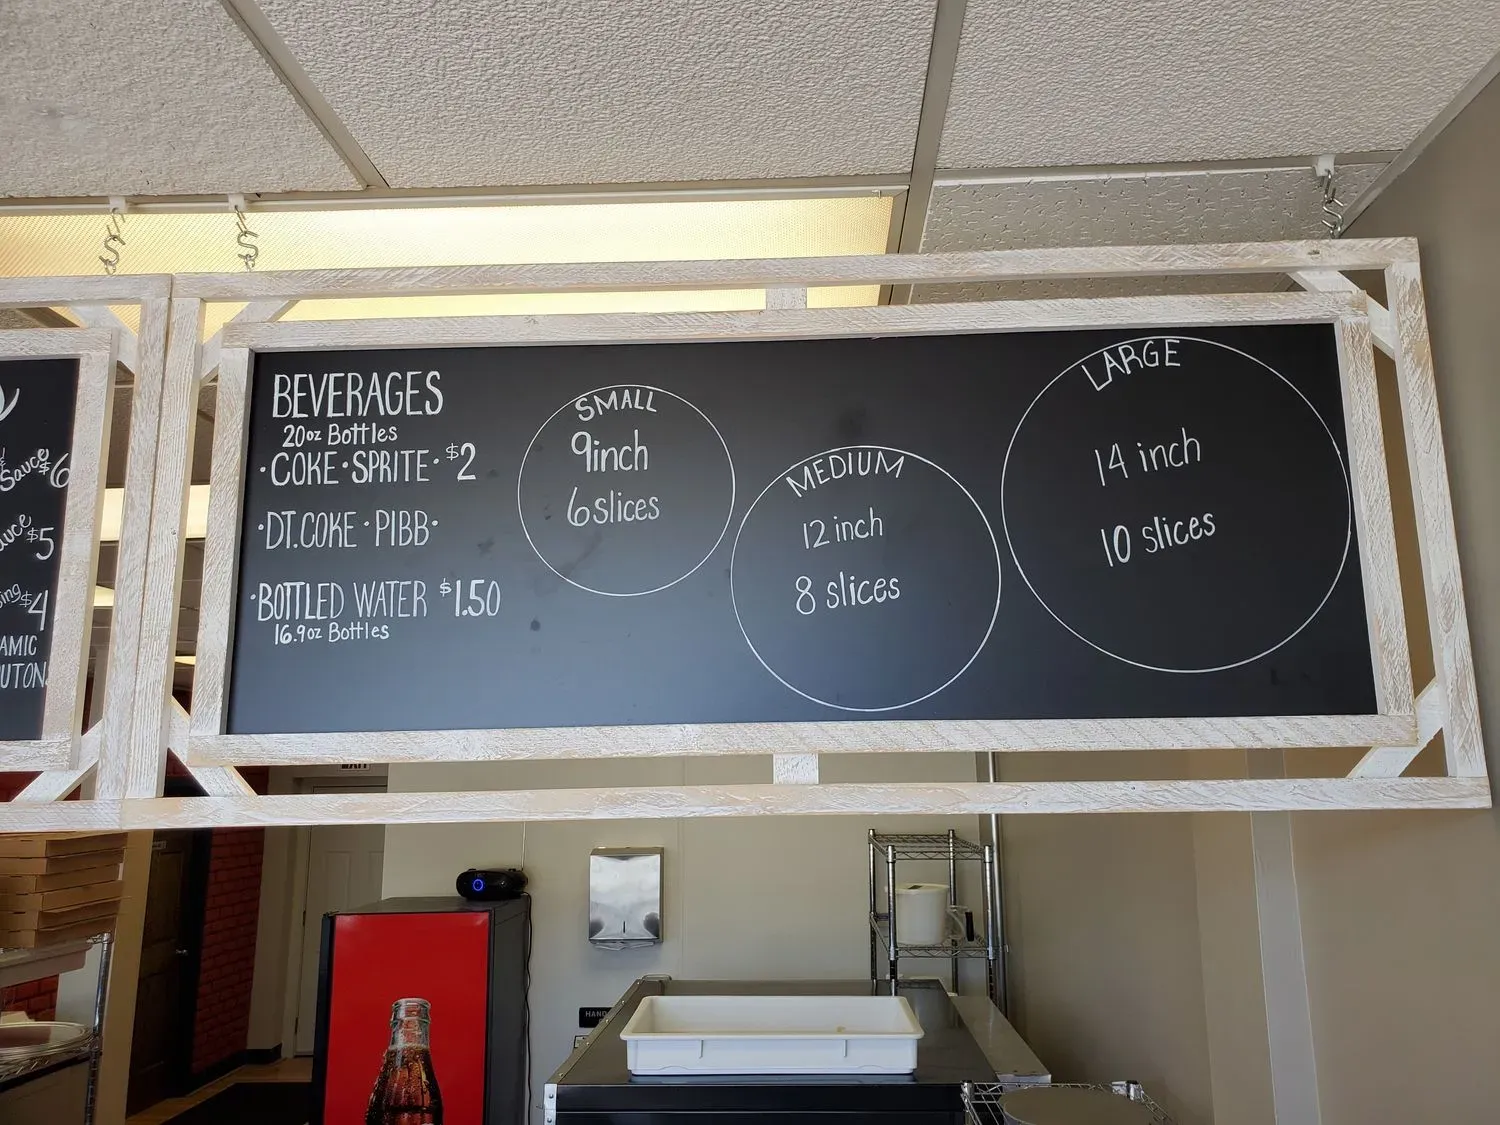 Sauce $6
$5
$4
BEVERAGES
20oz Bottles
•COKE•SPRITE• $2
•DT.COKE•PIBB•
•BOTTLED WATER $1.50
16.9oz Bottles
SMALL
9inch
6 slices
MEDIUM
12 inch
8 slices
LARGE
14 inch
10 slices
HAND